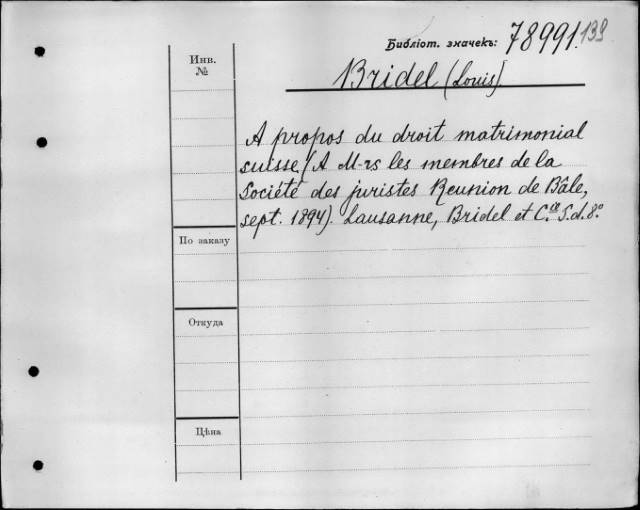 Библіот. значекъ: 78991.139
Инв.
№
Bridel (Louis)
A propos du droit matrimonial
suisse (A M-rs les membres de la
Société des juristes Reunion de Bâle,
sept. 1894). Lausanne, Bridel et Cie S.d. 8°
По заказу
Откуда
Цѣна